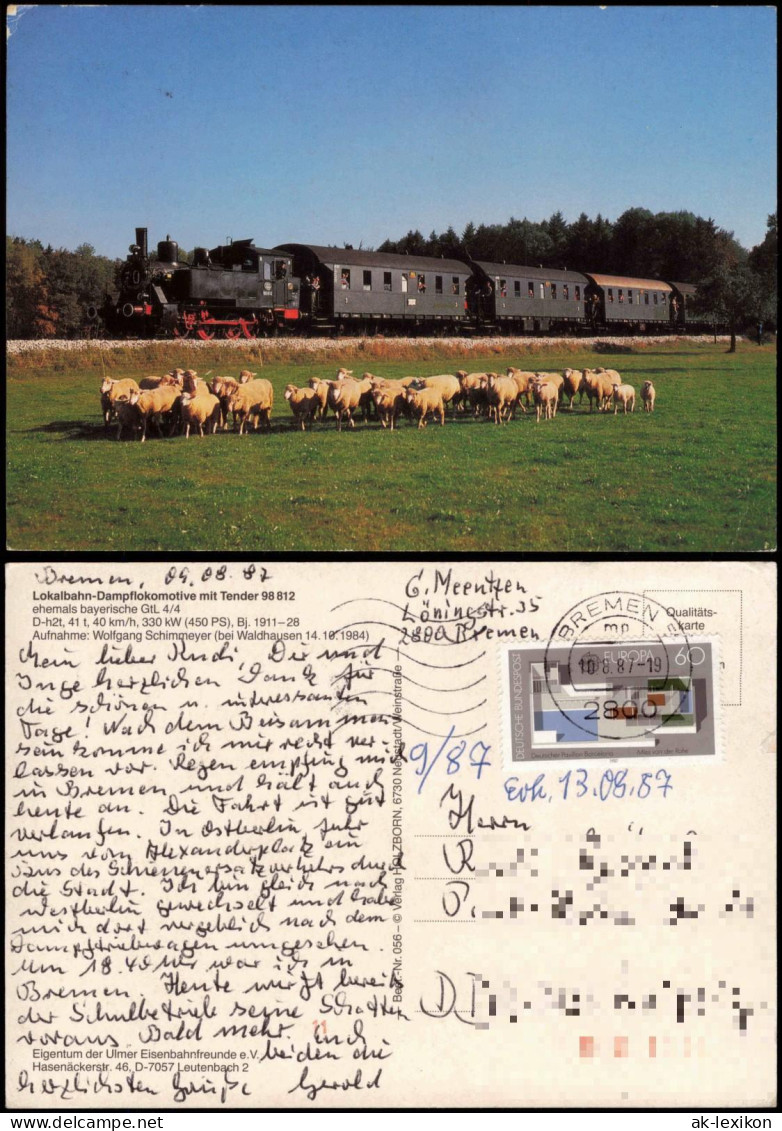 Bremen, 09.08.87
Lokalbahn-Dampflokomotive mit Tender 98 812
ehemals bayerische GtL 4/4
D-h2t, 41 t, 40 km/h, 330 kW (450 PS), Bj. 1911–28
Aufnahme: Wolfgang Schimmeyer (bei Waldhausen 14.10.1984)
Mein lieber Rudi, Dir und
Inge herzlichen Dank für
die schönen u. interessanten
Tage! Nach dem Beisammen
sein komme ich mir recht ver-
lassen vor. Regen empfing mich
in Bremen und hält auch
heute an. Die Fahrt ist gut
verlaufen. In Ostberlin fuhr
uns vom Alexanderplatz ein
Bus des Schienenersatzverkehrs durch
die Stadt. Ich bin gleich nach
Westberlin gewechselt und habe
mich dort vergeblich nach dem
Dampftriebwagen umgesehen.
Um 18.40 Uhr war ich in
Bremen. Heute wirft bereits
der Schulbetrieb seine Schatten
voraus. Bald mehr. Euch
beiden die
herzlichsten Grüße Gerold
Eigentum der Ulmer Eisenbahnfreunde e.V.
Hasenäckerstr. 46, D-7057 Leutenbach 2
Best.-Nr. 056 – © Verlag HOLZBORN, 6730 Neustadt/Weinstraße
G. Meentzen
Löningstr. 35
2800 Bremen
BREMEN
mp
10.8.87-19
2800
Qualitäts-
karte
DEUTSCHE BUNDESPOST
EUROPA 60
Deutscher Pavillon Barcelona
Mies van der Rohe
9/87
Erh. 13.08.87
Herrn
ak-lexikon